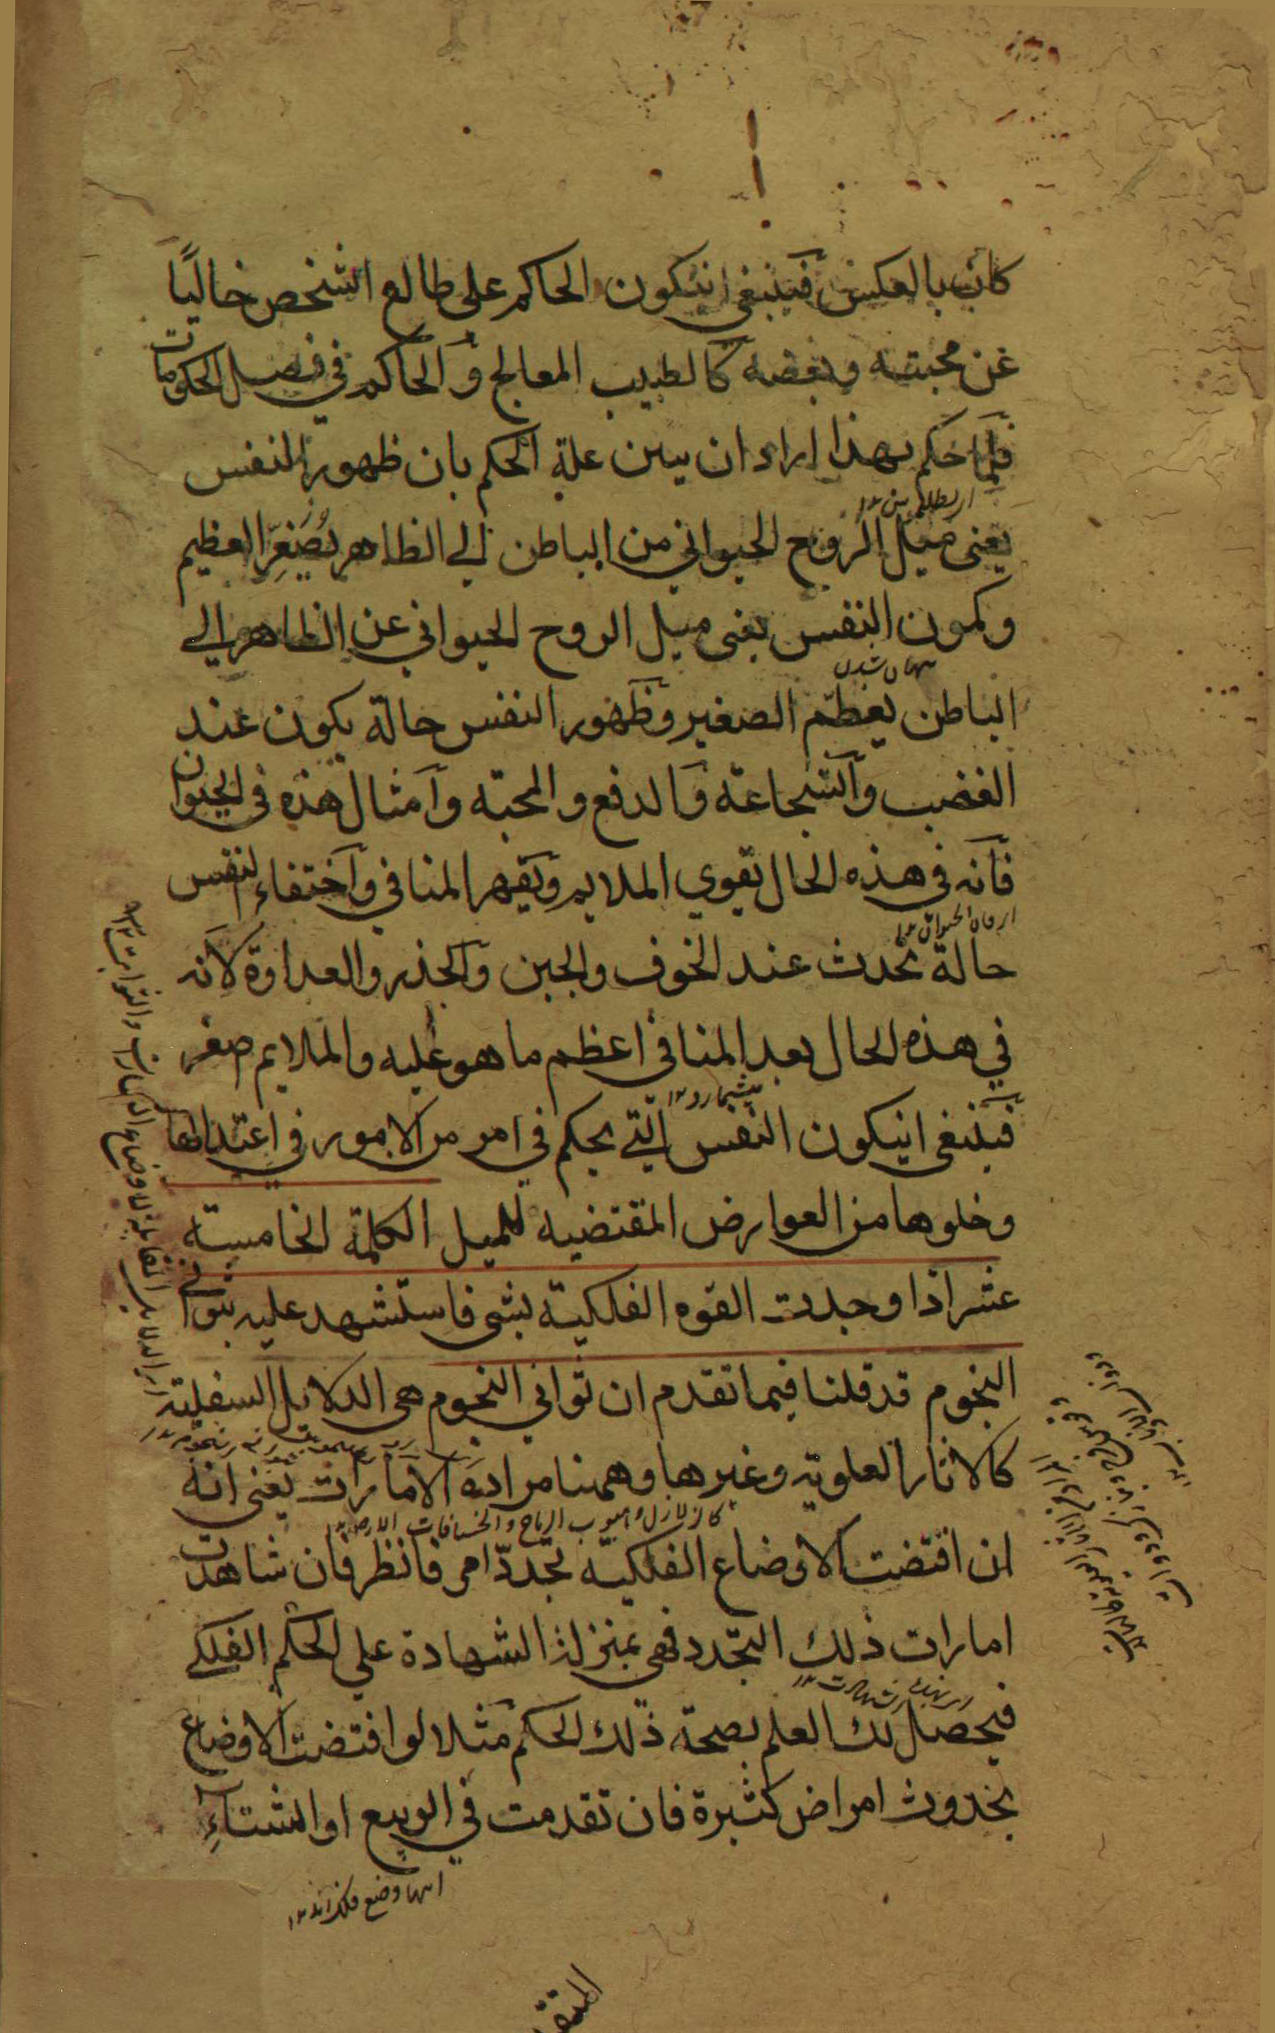 كان بالعكس فينبغى انيكون الحاكم على طالع الشخص خاليًا
عن محبته وبغضه كالطبيب المعالج والحاكم فى فصل الحكومات
فلما حكم بهذا اراد ان يبين علة الحكم بان ظهور النفس
يعنى ميل الروح الحيواني من الباطن الي الظاهر يُصَغِّر العظيم
وكمون النفس يعنى ميل الروح الحيواني عن الظاهر الي
الباطن يعظّم الصغير وظهور النفس حالة يكون عند
الغضب والشجاعة والدفع والمحبة وامثال هذه في الحيوان
فانه فى هذه الحال يقوي الملايم ويقهر المنافي واختفاء النفس
حالة يحدث عند الخوف والجبن والحذر والعداوة لانه
في هذه الحال يعد المنافى اعظم ما هو عليه والملايم اصغر
فينبغى انيكون النفس التي يحكم في امر من الامور في اعتدالها
وخلوها من العوارض المقتضيه للميل الكلمة الخامسة
عشر اذا وجدت القوه الفلكية بشى فاستشهد عليه بثوانى
النجوم قد قلنا فيما تقدم ان ثواني النجوم هى الدلايل السفلية
كالاثار العلويه وغيرها وههنا مراده الامارات يعنى انه
ان اقتضت الاوضاع الفلكية تجدّد امر فانظر فان شاهدت
امارات ذلك التجدد فهى بمنزلة الشهادة علي الحكم الفلكي
فيحصل لك العلم بصحة ذلك الحكم مثلا لو اقتضت الاوضاع
بحدوث امراض كثيرة فان تقدمت في الربيع او الشتاء